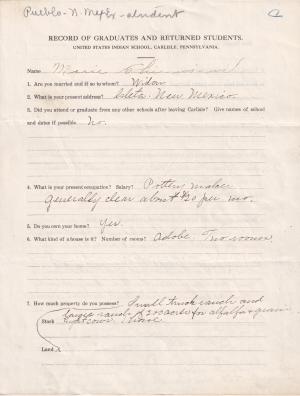 Pueblo - N. Mex. Ex-student
RECORD OF GRADUATES AND RETURNED STUDENTS.
UNITED STATES INDIAN SCHOOL, CARLISLE, PENNSYLVANIA.
Name Marie
1. Are you married and if so to whom? Widow
2. What is your present address? Isleta New Mexico
3. Did you attend or graduate from any other schools after leaving Carlisle? Give names of school
and dates if possible No.
4. What is your present occupation? Salary? Pottery maker
generally clear about $20 per mo.
5. Do you own your home? Yes.
6. What kind of a house is it? Number of rooms? Adobe. Two rooms.
7. How much property do you possess? Small truck ranch and
large ranch for alfalfa & grain
Stock horse
Land